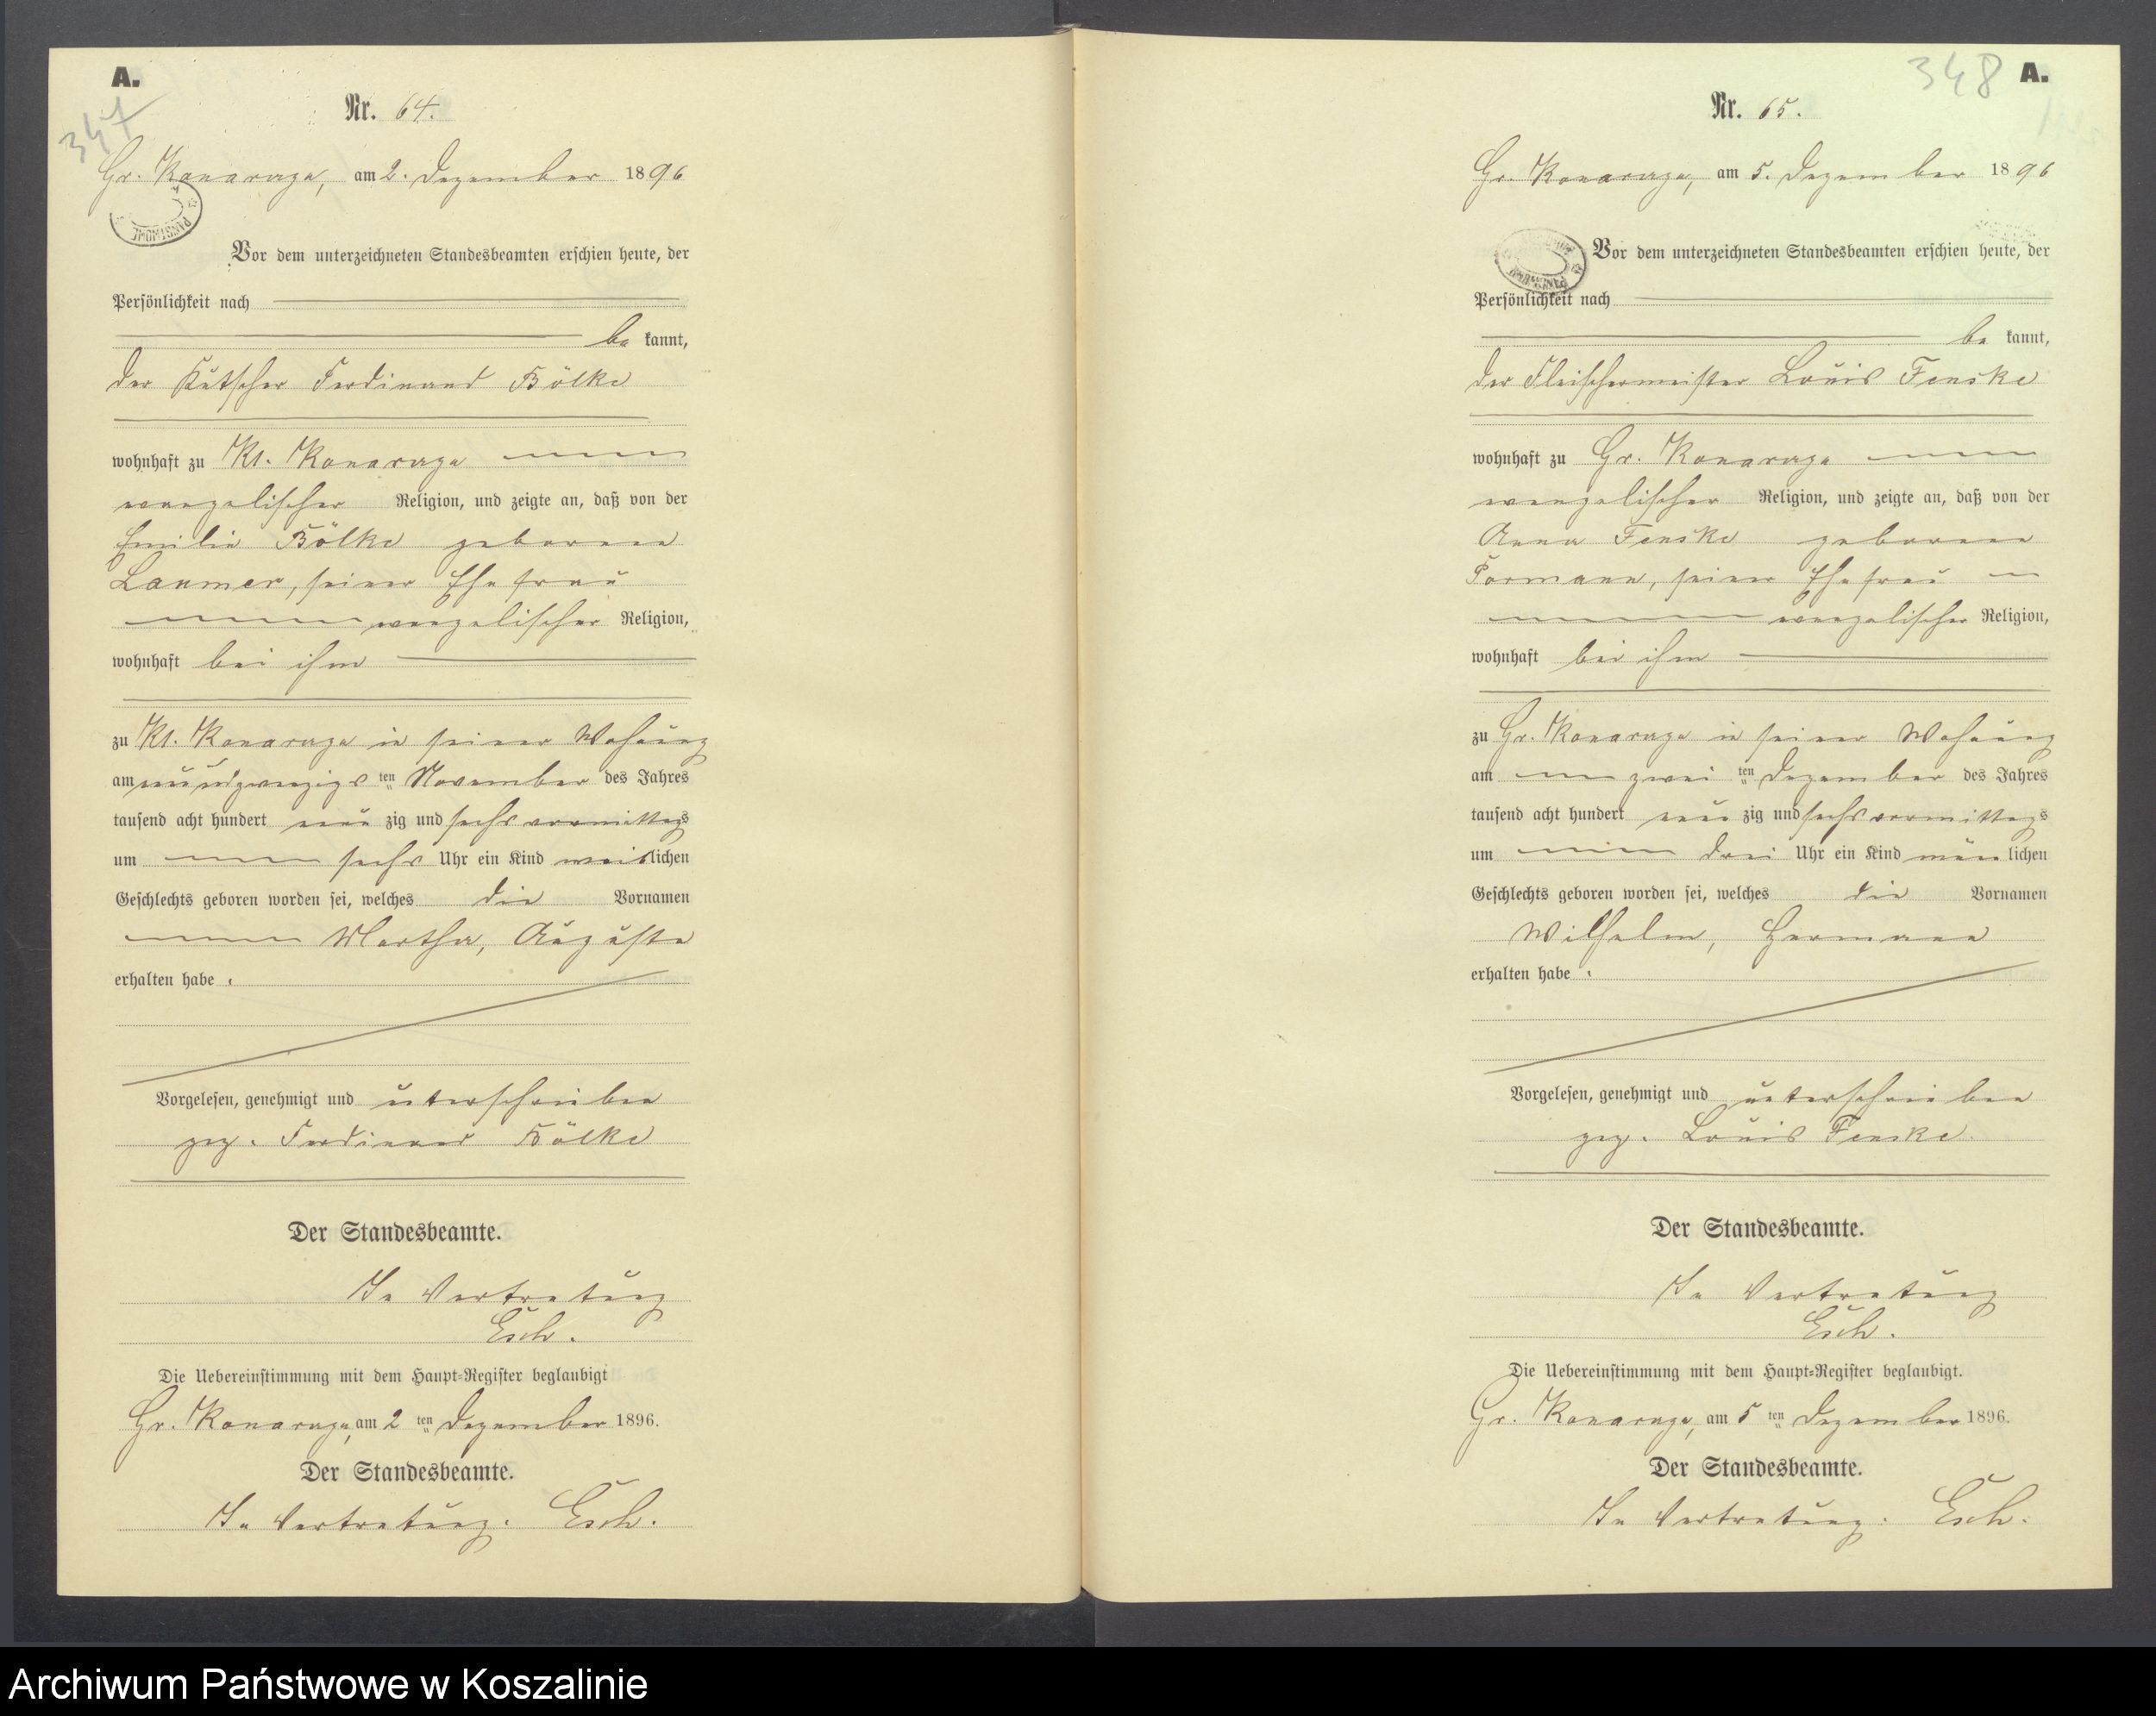 A.
347
Nr. 64.
Gr. Konarzyn, am 2. Dezember 1896
Vor dem unterzeichneten Standesbeamten erschien heute, der
Persönlichkeit nach
be kannt,
der Kutscher Ferdinand Bölke
wohnhaft zu Kl. Konarzyn
evangelischer Religion, und zeigte an, daß von der
Emilie Bölke geborene
Laumer, seiner Ehefrau
evangelischer Religion,
wohnhaft bei ihm
zu Kl. Konarzyn in seiner Wohnung
am neunundzwanzigs ten November des Jahres
tausend acht hundert neun zig und sechs vormittags
um sechs Uhr ein Kind weiblichen
Geschlechts geboren worden sei, welches die Vornamen
Martha, Auguste
erhalten habe.
Vorgelesen, genehmigt und unterschrieben
gez. Ferdinand Bölke
Der Standesbeamte.
In Vertretung
Esch.
Die Uebereinstimmung mit dem Haupt-Register beglaubigt
Gr. Konarzyn, am 2 ten Dezember 1896.
Der Standesbeamte.
In Vertretung. Esch.
348 A.
Nr. 65.
Gr. Konarzyn, am 5. Dezember 1896
Vor dem unterzeichneten Standesbeamten erschien heute, der
Persönlichkeit nach
be kannt,
der Fleischermeister Louis Fenske
wohnhaft zu Gr. Konarzyn
evangelischer Religion, und zeigte an, daß von der
Anna Fenske geborene
Pormann, seiner Ehefrau
evangelischer Religion,
wohnhaft bei ihm
zu Gr. Konarzyn in seiner Wohnung
am zwei ten Dezember des Jahres
tausend acht hundert neun zig und sechs vormittags
um drei Uhr ein Kind männlichen
Geschlechts geboren worden sei, welches die Vornamen
Wilhelm, Hermann
erhalten habe.
Vorgelesen, genehmigt und unterschrieben
gez. Louis Fenske
Der Standesbeamte.
In Vertretung
Esch.
Die Uebereinstimmung mit dem Haupt-Register beglaubigt.
Gr. Konarzyn, am 5 ten Dezember 1896.
Der Standesbeamte.
In Vertretung. Esch.
Archiwum Państwowe w Koszalinie